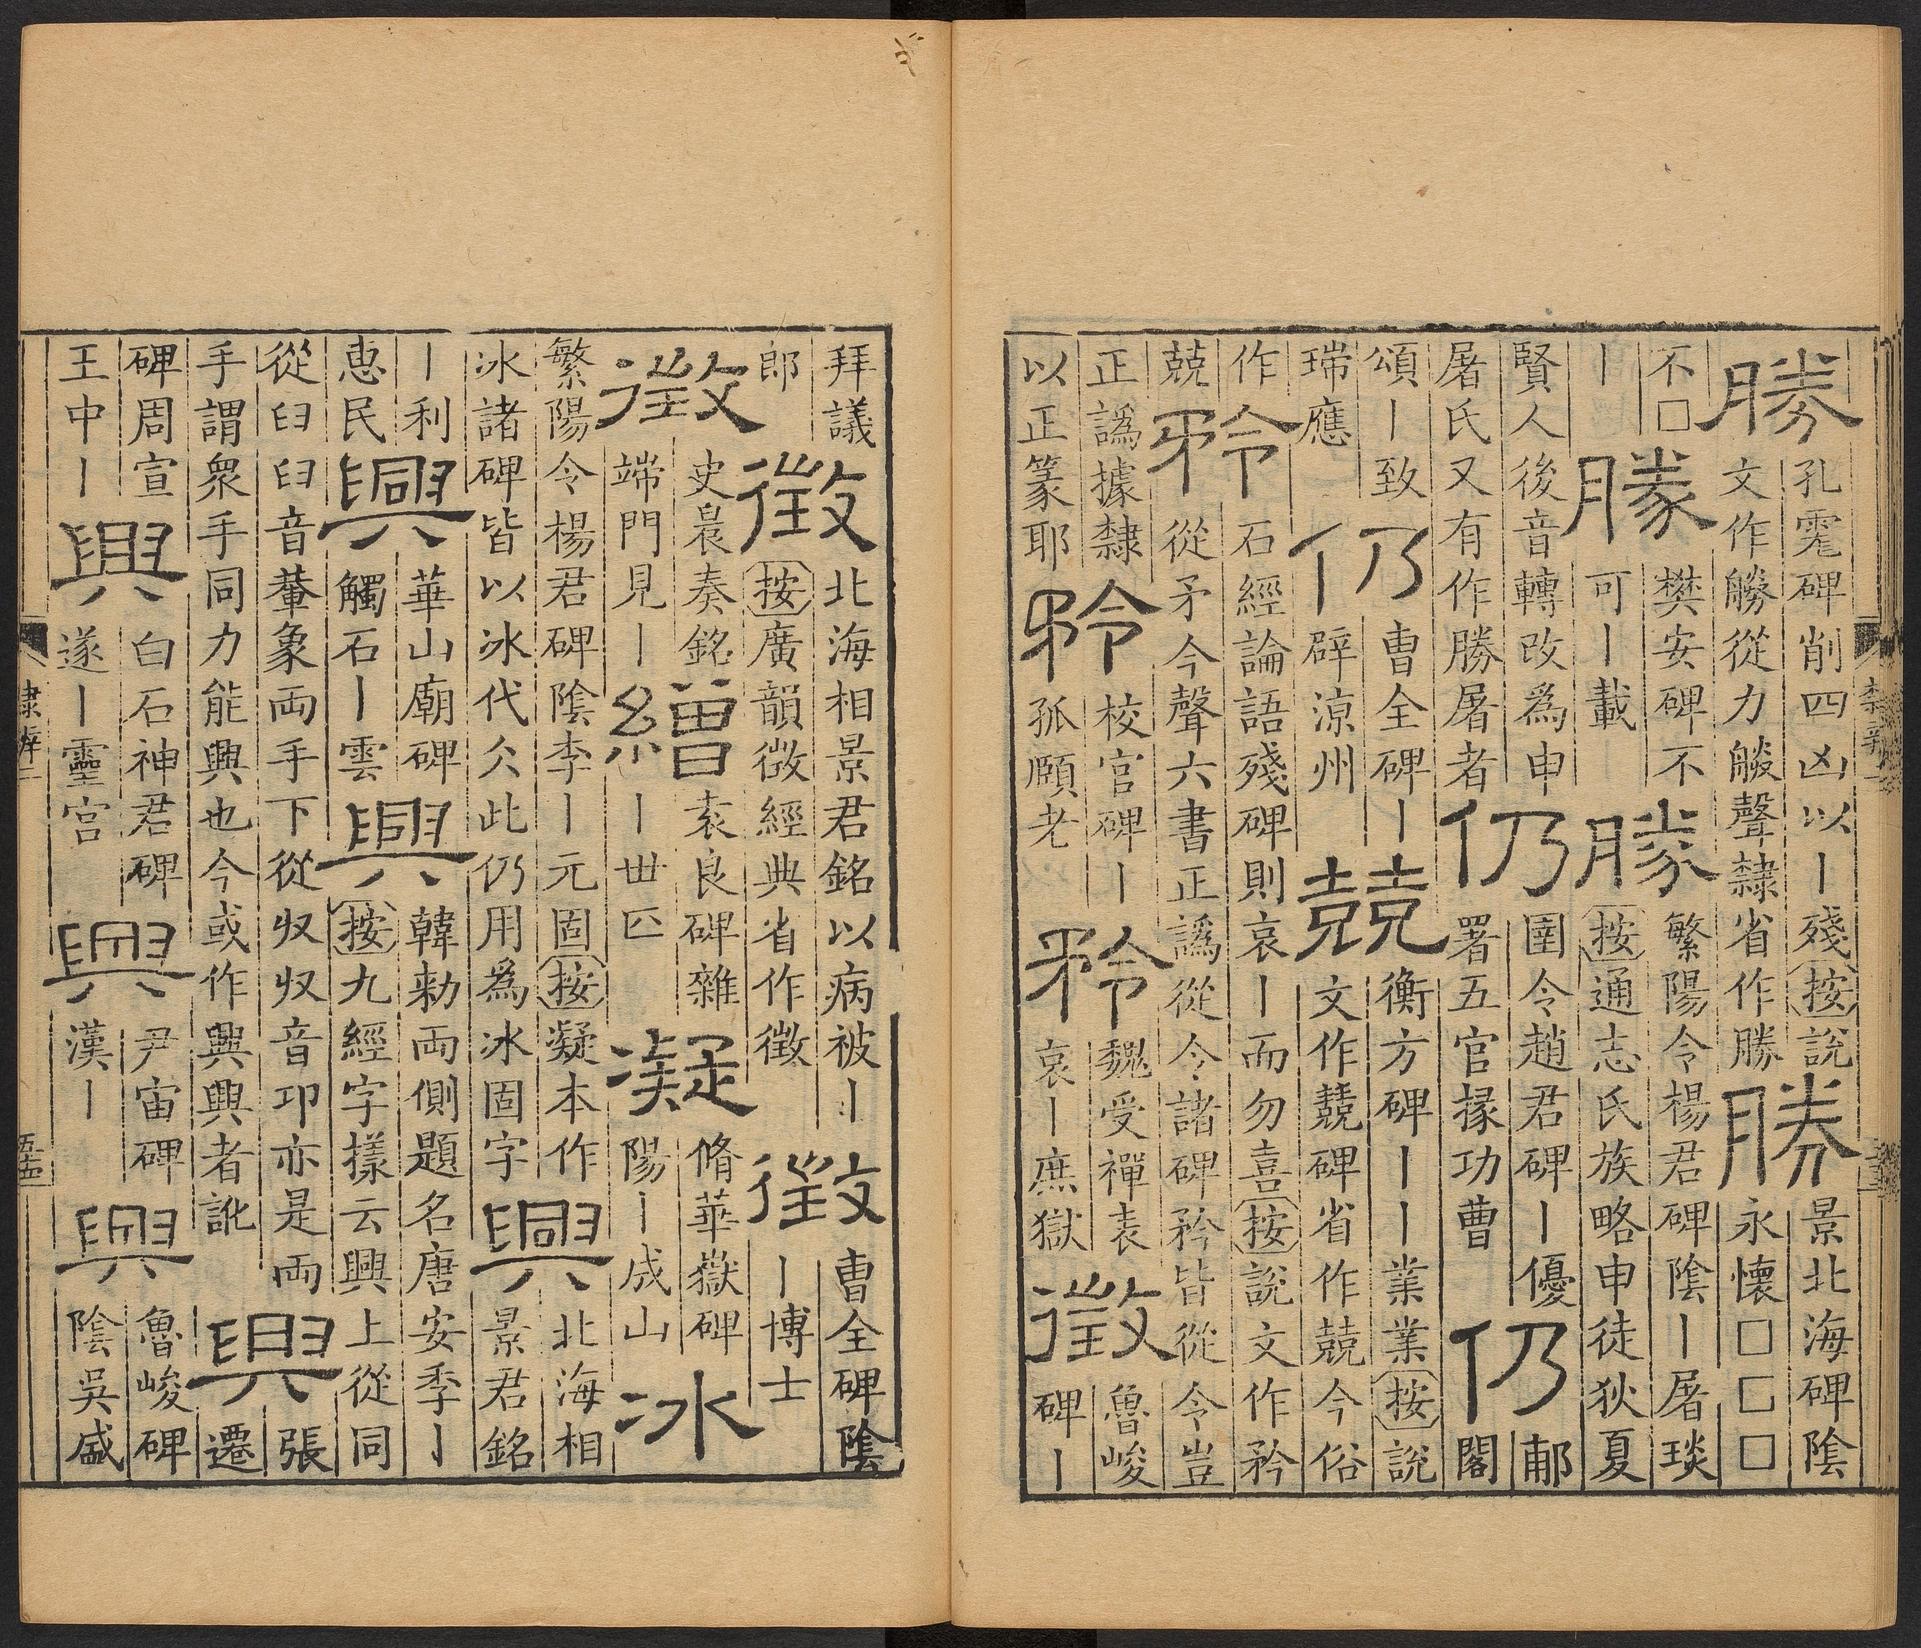 勝孔宙碑削四凶以丨殘按說
文作勝從力朕聲隸省作勝
勝景北海碑陰
永懷□□□
不□
丨
勝樊安碑不
可丨載
勝繁陽令楊君碑陰丨屠琰
按通志氏族略申徒狄夏
賢人後音轉改爲申
屠氏又有作勝屠者
仍圉令趙君碑丨優
署五官掾功曹
仍郙
閣
頌丨致
瑞應
仍曹全碑丨
辟涼州
兢衡方碑丨丨業業按說
文作兢碑省作兢今俗
作
兢
矜石經論語殘碑則哀丨而勿喜按說文作矜
從矛今聲六書正譌從令諸碑矜皆從令豈
正譌據隸
以正篆耶
矜校官碑丨
孤頤老
矜魏受禪表
哀丨庶獄
徵魯峻
碑丨
拜議
郎
徵北海相景君銘以病被丨
按廣韻徵經典省作徵
徵曹全碑陰
丨博士
徵史晨奏銘
端門見丨
繒袁良碑雜
丨丗匹
凝脩華嶽碑
陽丨成山
冰
繁陽令楊君碑陰李丨元固按凝本作
冰諸碑皆以冰代仌此仍用爲冰固字
興北海相
景君銘
丨利
惠民
興華山廟碑
觸石丨雲
興韓勑兩側題名唐安季丨
按九經字樣云興上從同
從臼臼音輂象兩手下從収収音邛亦是兩
手謂眾手同力能興也今或作興興者訛
興張
遷
碑周宣
王中丨
興白石神君碑
遂丨靈宮
興尹宙碑
漢丨
興魯峻碑
陰吳盛